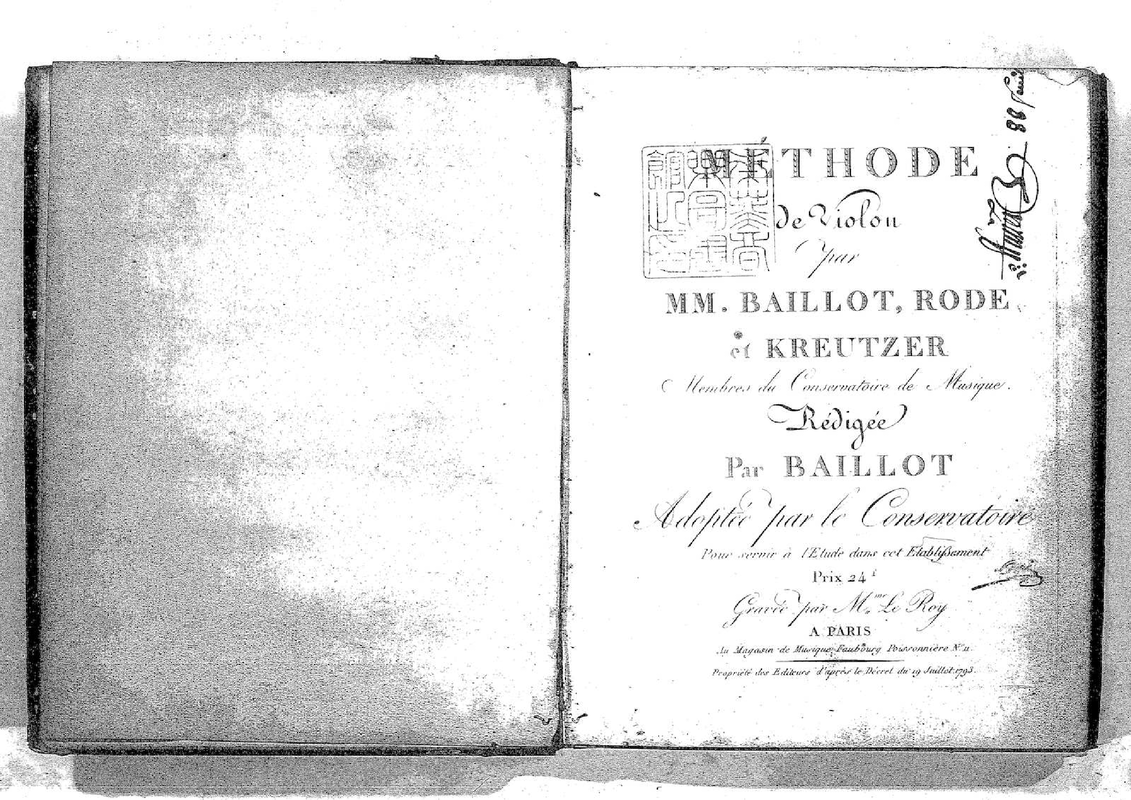 MÉTHODE
de Violon
par
MM. BAILLOT, RODE
et KREUTZER
Membres du Conservatoire de Musique.
Rédigée
Par BAILLOT
Adoptée par le Conservatoire
Pour servir à l'Etude dans cet Etablissement
Prix 24f
Gravée par Mme. Le Roy
A PARIS
Au Magasin de Musique, Faubourg Poissonnière No. 11
Propriété des Editeurs d'après le Décret du 19 Juillet 1793.